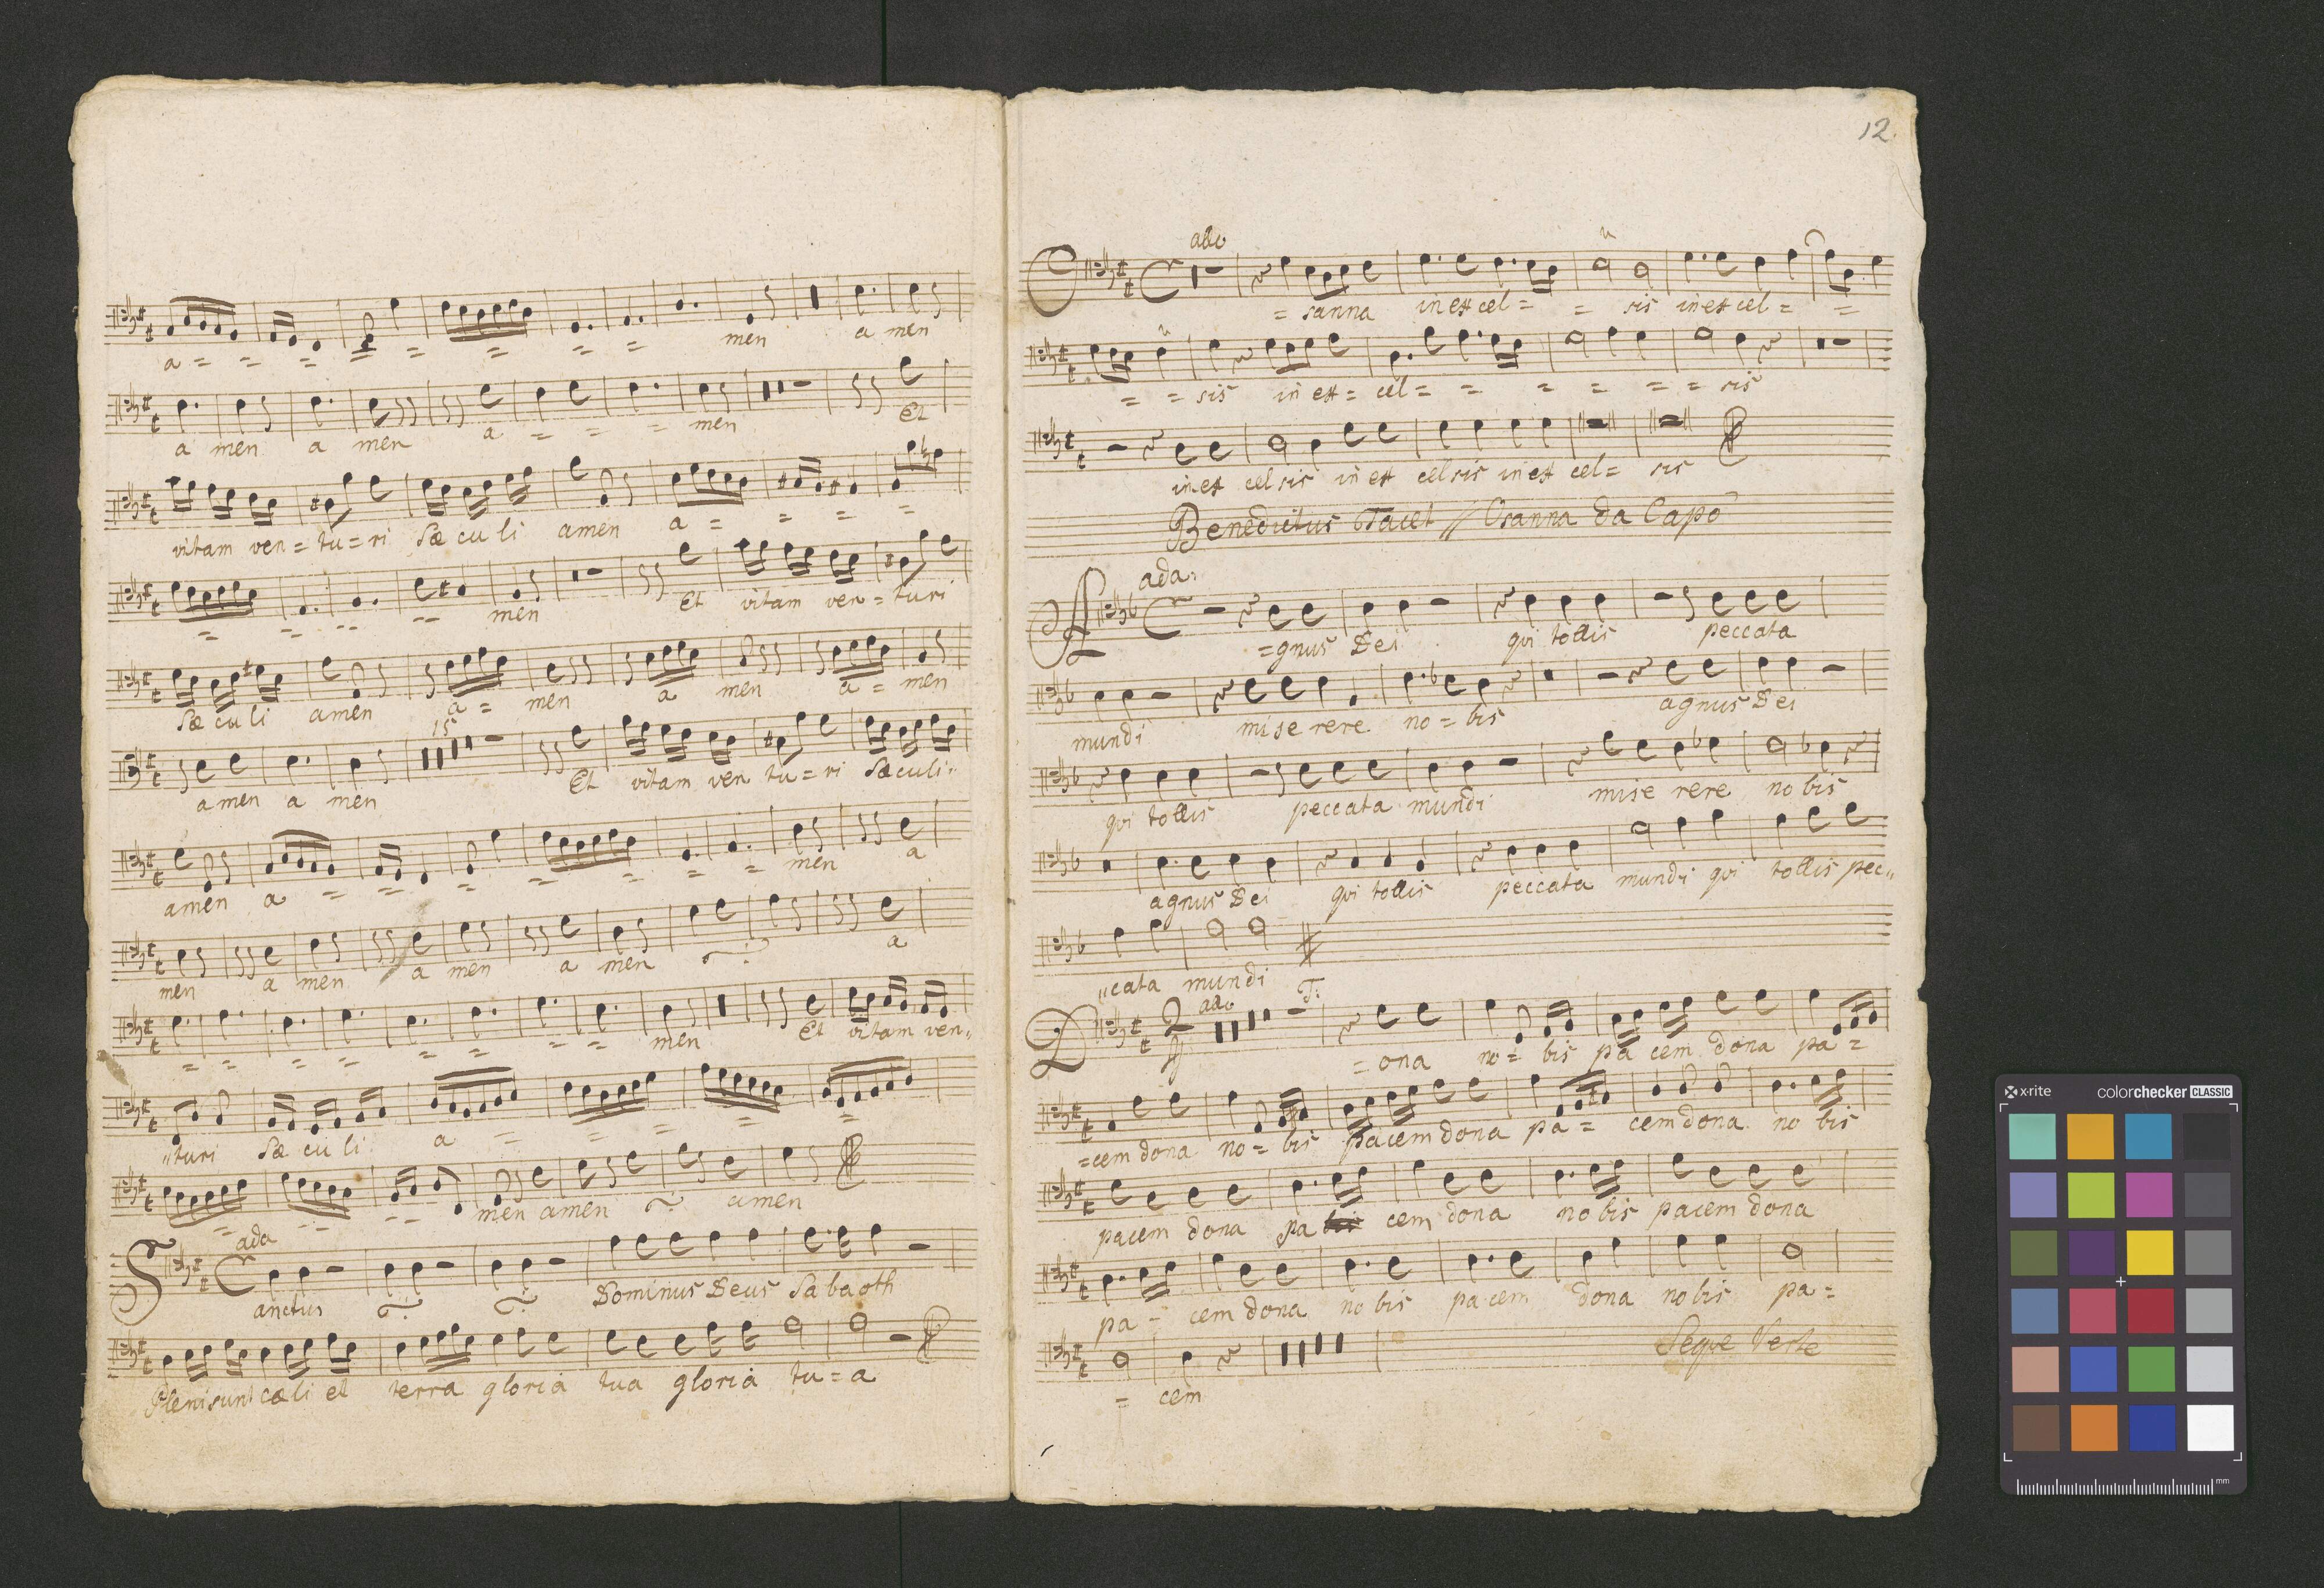 a = = = = = = = = men a men
a men a men a = = = men Et
vitam ven = tu = ri Sæ cu li amen a = = = =
= = = = men Et vitam ven = turi
Sæ cu li amen a = men a men a = men
15
amen a men Et vitam ven tu = ri Sæculi"
amen a = = = = = = = men a
men a men a men a men a
= = = = = = = = men Et vitam ven"
"turi Sæ cu li a = = = = =
= = = men amen amen
ada
Sanctus Dominus Deus Sabaoth
Pleni sunt cæli et terra gloria tua gloria tu = a
12.
allo
O = sanna in ex cel = = sis in ex cel = =
= = sis in ex = cel = = = = = = sis
in ex celsis in ex celsis in ex cel = sis
Benedictus Tacet // Osanna da Capo
ada:
A = gnus Dei qui tollis peccata
mundi mise rere no = bis agnus Dei
qui tollis peccata mundi mise rere no bis
agnus Dei qui tollis peccata mundi qui tollis pec"
"cata mundi
allo T:
D 2/4 = ona no = bis pa cem dona pa =
=cem dona no = bis pacem dona pa = cem dona no bis
pacem dona pa cem dona no bis pacem dona
pa - cem dona no bis pa cem dona no bis pa =
= cem Seque Verte
x-rite colorchecker CLASSIC
mm